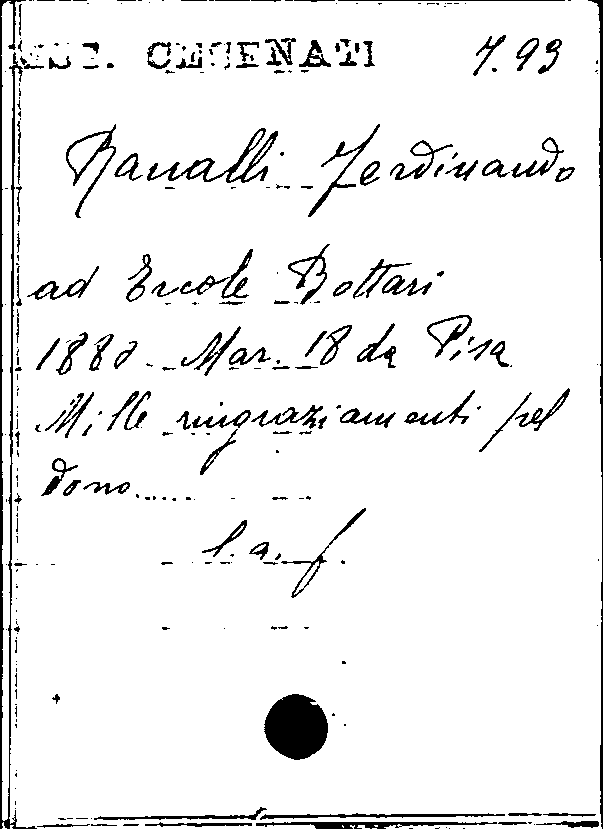 MSS. CESENATI 7.93
Ranalli Ferdinando
ad Ercole Bottari
1880 Mar. 18 da Pisa
Mille ringraziamenti pel
dono.....
l. a. f.